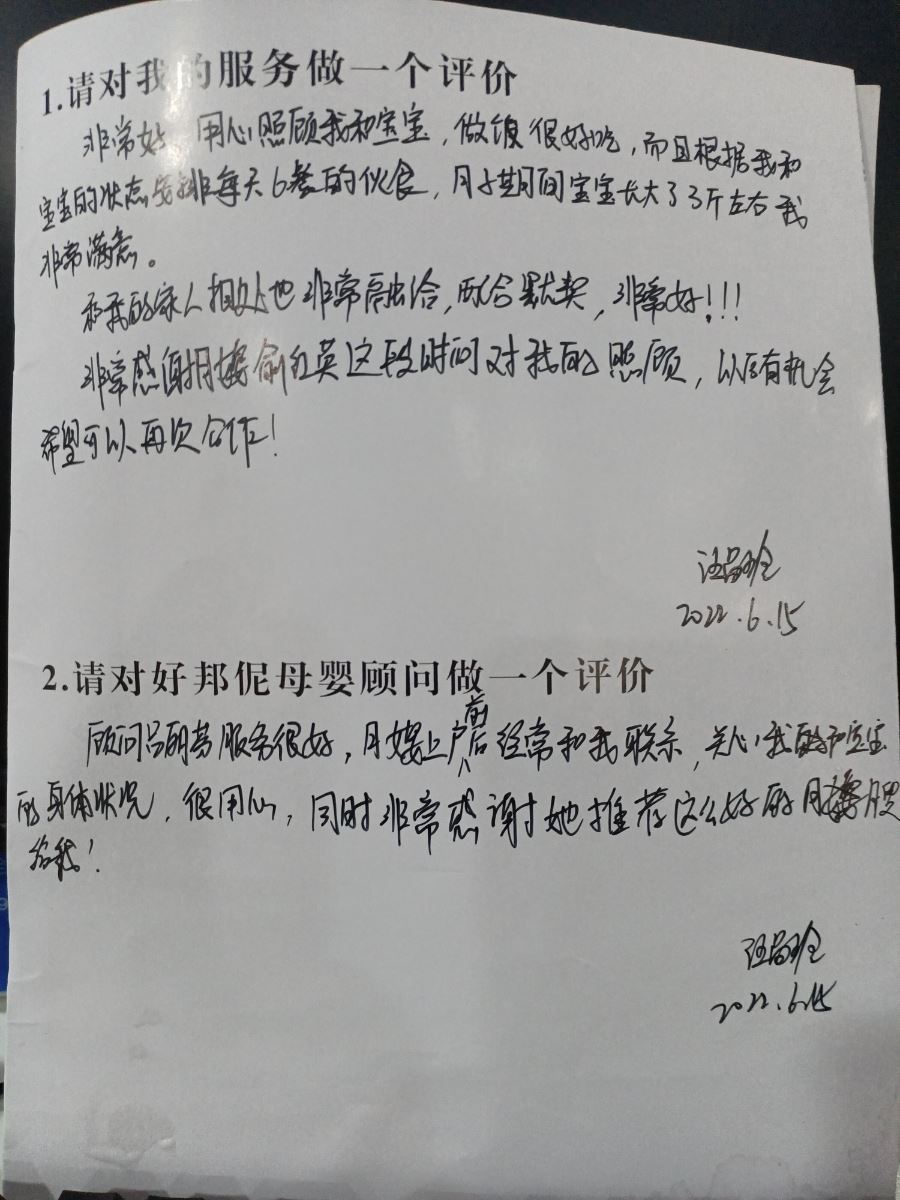 1.请对我的服务做一个评价
非常好，用心照顾我和宝宝，做饭很好吃，而且根据我和
宝宝的状态安排每天6餐的伙食，月子期间宝宝长大了3斤左右我
非常满意。
和我的家人相处也非常融洽，配合默契，非常好！！！
非常感谢月嫂俞红英这段时间对我的照顾，以后有机会
希望可以再次合作！
2022.6.15
2.请对好邦伲母婴顾问做一个评价
顾问吕丽萍服务很好，月嫂上户前后经常和我联系，关心我和宝宝
的身体状况，很用心，同时非常感谢她推荐这么好的月嫂
给我！
2022.6.15